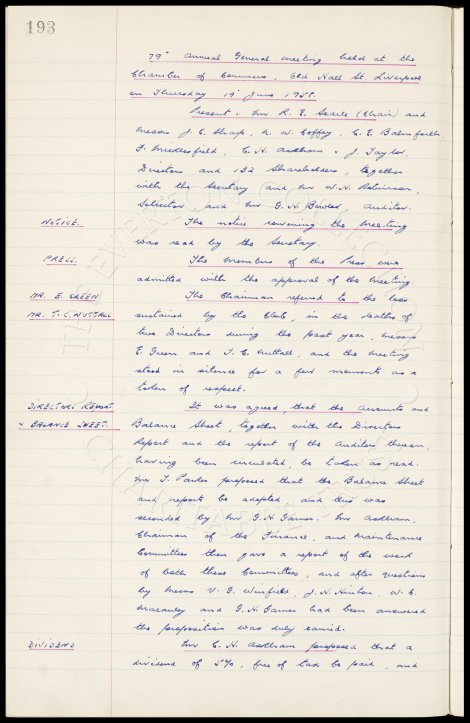 193
79th Annual General Meeting held at the
Chamber of Commerce, Old Hall St. Liverpool
on Thursday 19th June 1958.
Present: Mr R. E. Searle (Chair) and
Messrs J. C. Sharp, N. W. Coffey, C. E. Balmforth
F. Micklesfield, C. H. Askham & J. Taylor,
Directors and 132 Shareholders, together
with the Secretary and Mr W. H. Robinson,
Solicitor and Mr G. H. Bowler, Auditor.
NOTICE. The notice convening the Meeting
was read by the Secretary.
PRESS. The Members of the Press were
admitted with the approval of the Meeting.
MR. E. GREEN The Chairman referred to the loss
MR. T. C. NUTTALL sustained by the Club, in the deaths of
two Directors during the past year, Messrs
E. Green and T. C. Nuttall, and the Meeting
stood in silence for a few moments as a
token of respect.
DIRECTORS REPORT It was agreed, that the Accounts and
& BALANCE SHEET. Balance Sheet, together with the Directors
Report and the report of the Auditors thereon,
having been circulated, be taken as read.
Mr T. Parker proposed that the Balance Sheet
and reports be adopted, and this was
seconded by Mr G. H. Garner. Mr Askham,
Chairman of the Finance, and Maintenance
Committees then gave a report of the work
of both these Committees, and after questions
by Messrs V. G. Winfield, J. H. Hinton, W. E.
Macauley and G. H. Garner had been answered
the proposition was duly carried.
DIVIDEND Mr C. H. Askham proposed that a
dividend of 5%, free of tax be paid, and
THE EVERTON COLLECTION
CHARITABLE TRUST